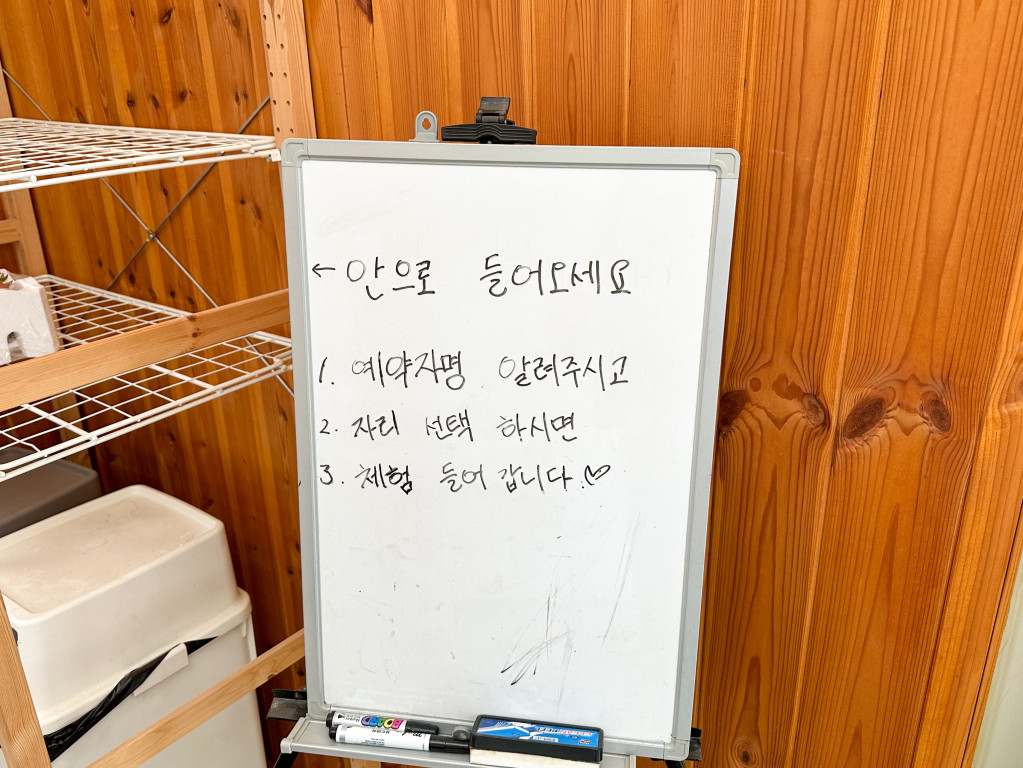 ← 안으로 들어오세요
1. 예약자명 알려주시고
2. 자리 선택 하시면
3. 체험 들어 갑니다.♡